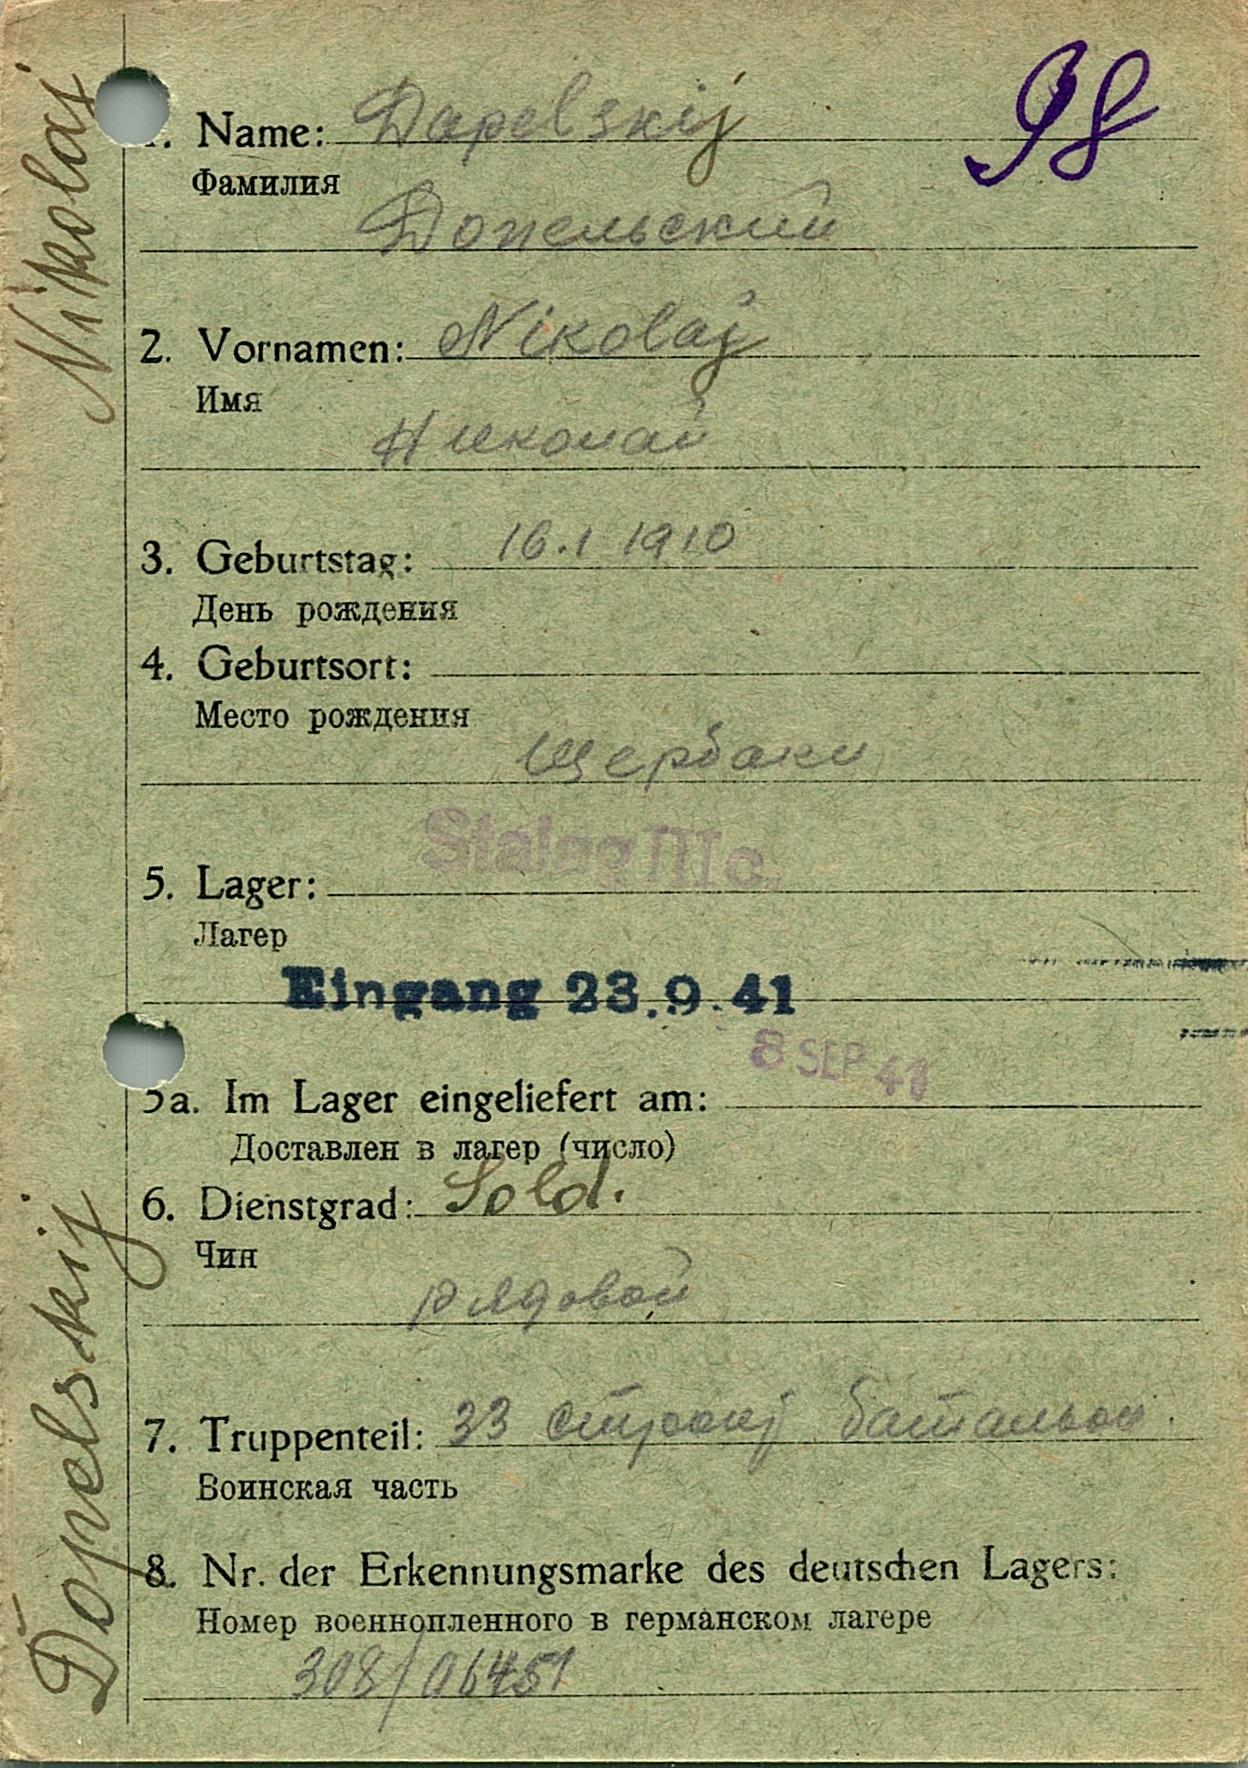 98
1. Name: Dapelskij
Фамилия
Допельский
2. Vornamen: Nikolaj
Имя
Николай
3. Geburtstag: 16.1 1910
День рождения
4. Geburtsort:
Место рождения
Щербаки
Stalag III c.
5. Lager:
Лагер
Eingang 23.9.41
8 SEP 41
5a. Im Lager eingeliefert am:
Доставлен в лагер (число)
6. Dienstgrad: Sold.
Чин
Рядовой
7. Truppenteil: 33 строит батальон.
Воинская часть
8. Nr. der Erkennungsmarke des deutschen Lagers:
Номер военнопленного в германском лагере
308/06451
Dopelskij Nikolaj